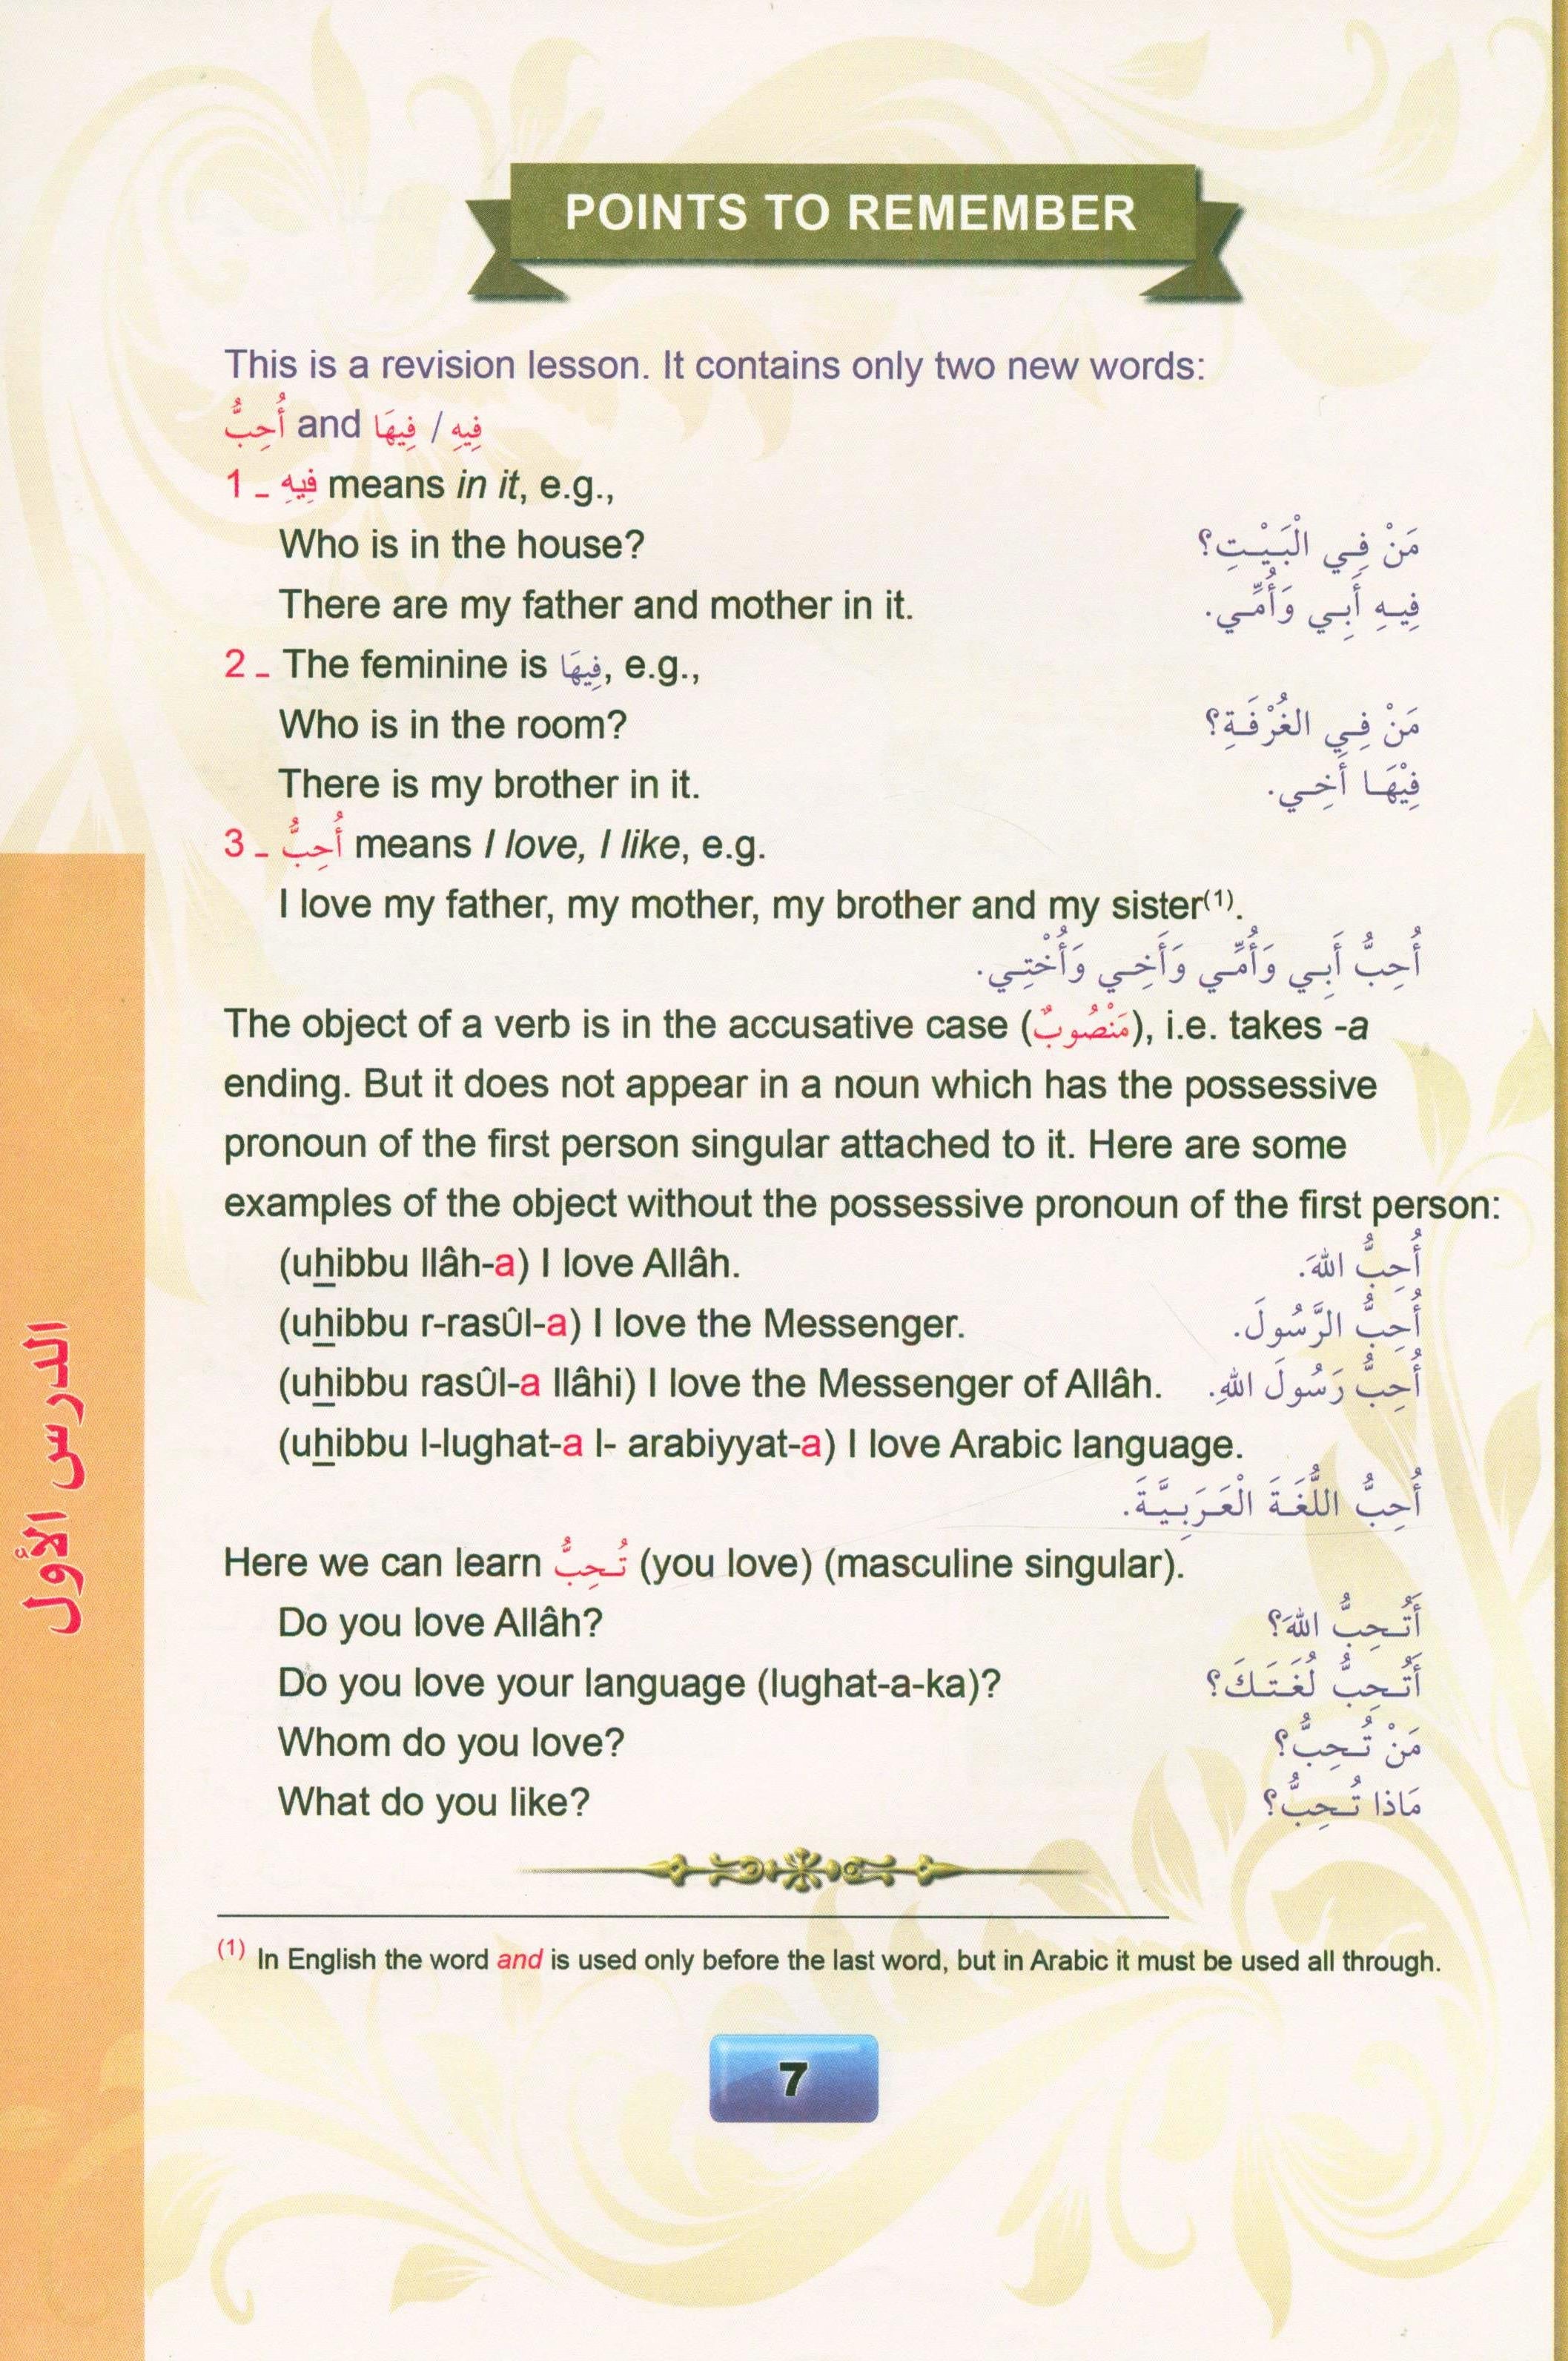 POINTS TO REMEMBER
This is a revision lesson. It contains only two new words:
أُحِبُّ and فِيهَا / فِيهِ
1 - فِيهِ means in it, e.g.,
Who is in the house? مَنْ فِي الْبَيْتِ؟
There are my father and mother in it. فِيهِ أَبِي وَأُمِّي.
2 - The feminine is فِيهَا, e.g.,
Who is in the room? مَنْ فِي الغُرْفَةِ؟
There is my brother in it. فِيْهَا أَخِي.
3 - أُحِبُّ means I love, I like, e.g.
I love my father, my mother, my brother and my sister(1).
أُحِبُّ أَبِي وَأُمِّي وَأَخِي وَأُخْتِي.
The object of a verb is in the accusative case (مَنْصُوبٌ), i.e. takes -a
ending. But it does not appear in a noun which has the possessive
pronoun of the first person singular attached to it. Here are some
examples of the object without the possessive pronoun of the first person:
(uhibbu llâh-a) I love Allâh. أُحِبُّ اللهَ.
(uhibbu r-rasûl-a) I love the Messenger. أُحِبُّ الرَّسُولَ.
(uhibbu rasûl-a llâhi) I love the Messenger of Allâh. أُحِبُّ رَسُولَ اللهِ.
(uhibbu l-lughat-a l- arabiyyat-a) I love Arabic language.
أُحِبُّ اللُّغَةَ الْعَرَبِيَّةَ.
Here we can learn تُحِبُّ (you love) (masculine singular).
Do you love Allâh? أَتُحِبُّ اللهَ؟
Do you love your language (lughat-a-ka)? أَتُحِبُّ لُغَتَكَ؟
Whom do you love? مَنْ تُحِبُّ؟
What do you like? مَاذا تُحِبُّ؟
(1) In English the word and is used only before the last word, but in Arabic it must be used all through.
7
الدرس الأول